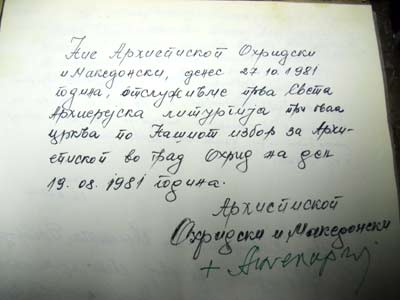 Ние Архиепископ Охридски
и Македонски, денес 27.10.1981
година, отслуживме прва Света
Архиерејска литургија при оваа
црква по Нашиот избор за Архи-
епископ во град Охрид на ден
19.08.1981 година.
Архиепископ
Охридски и Македонски
+